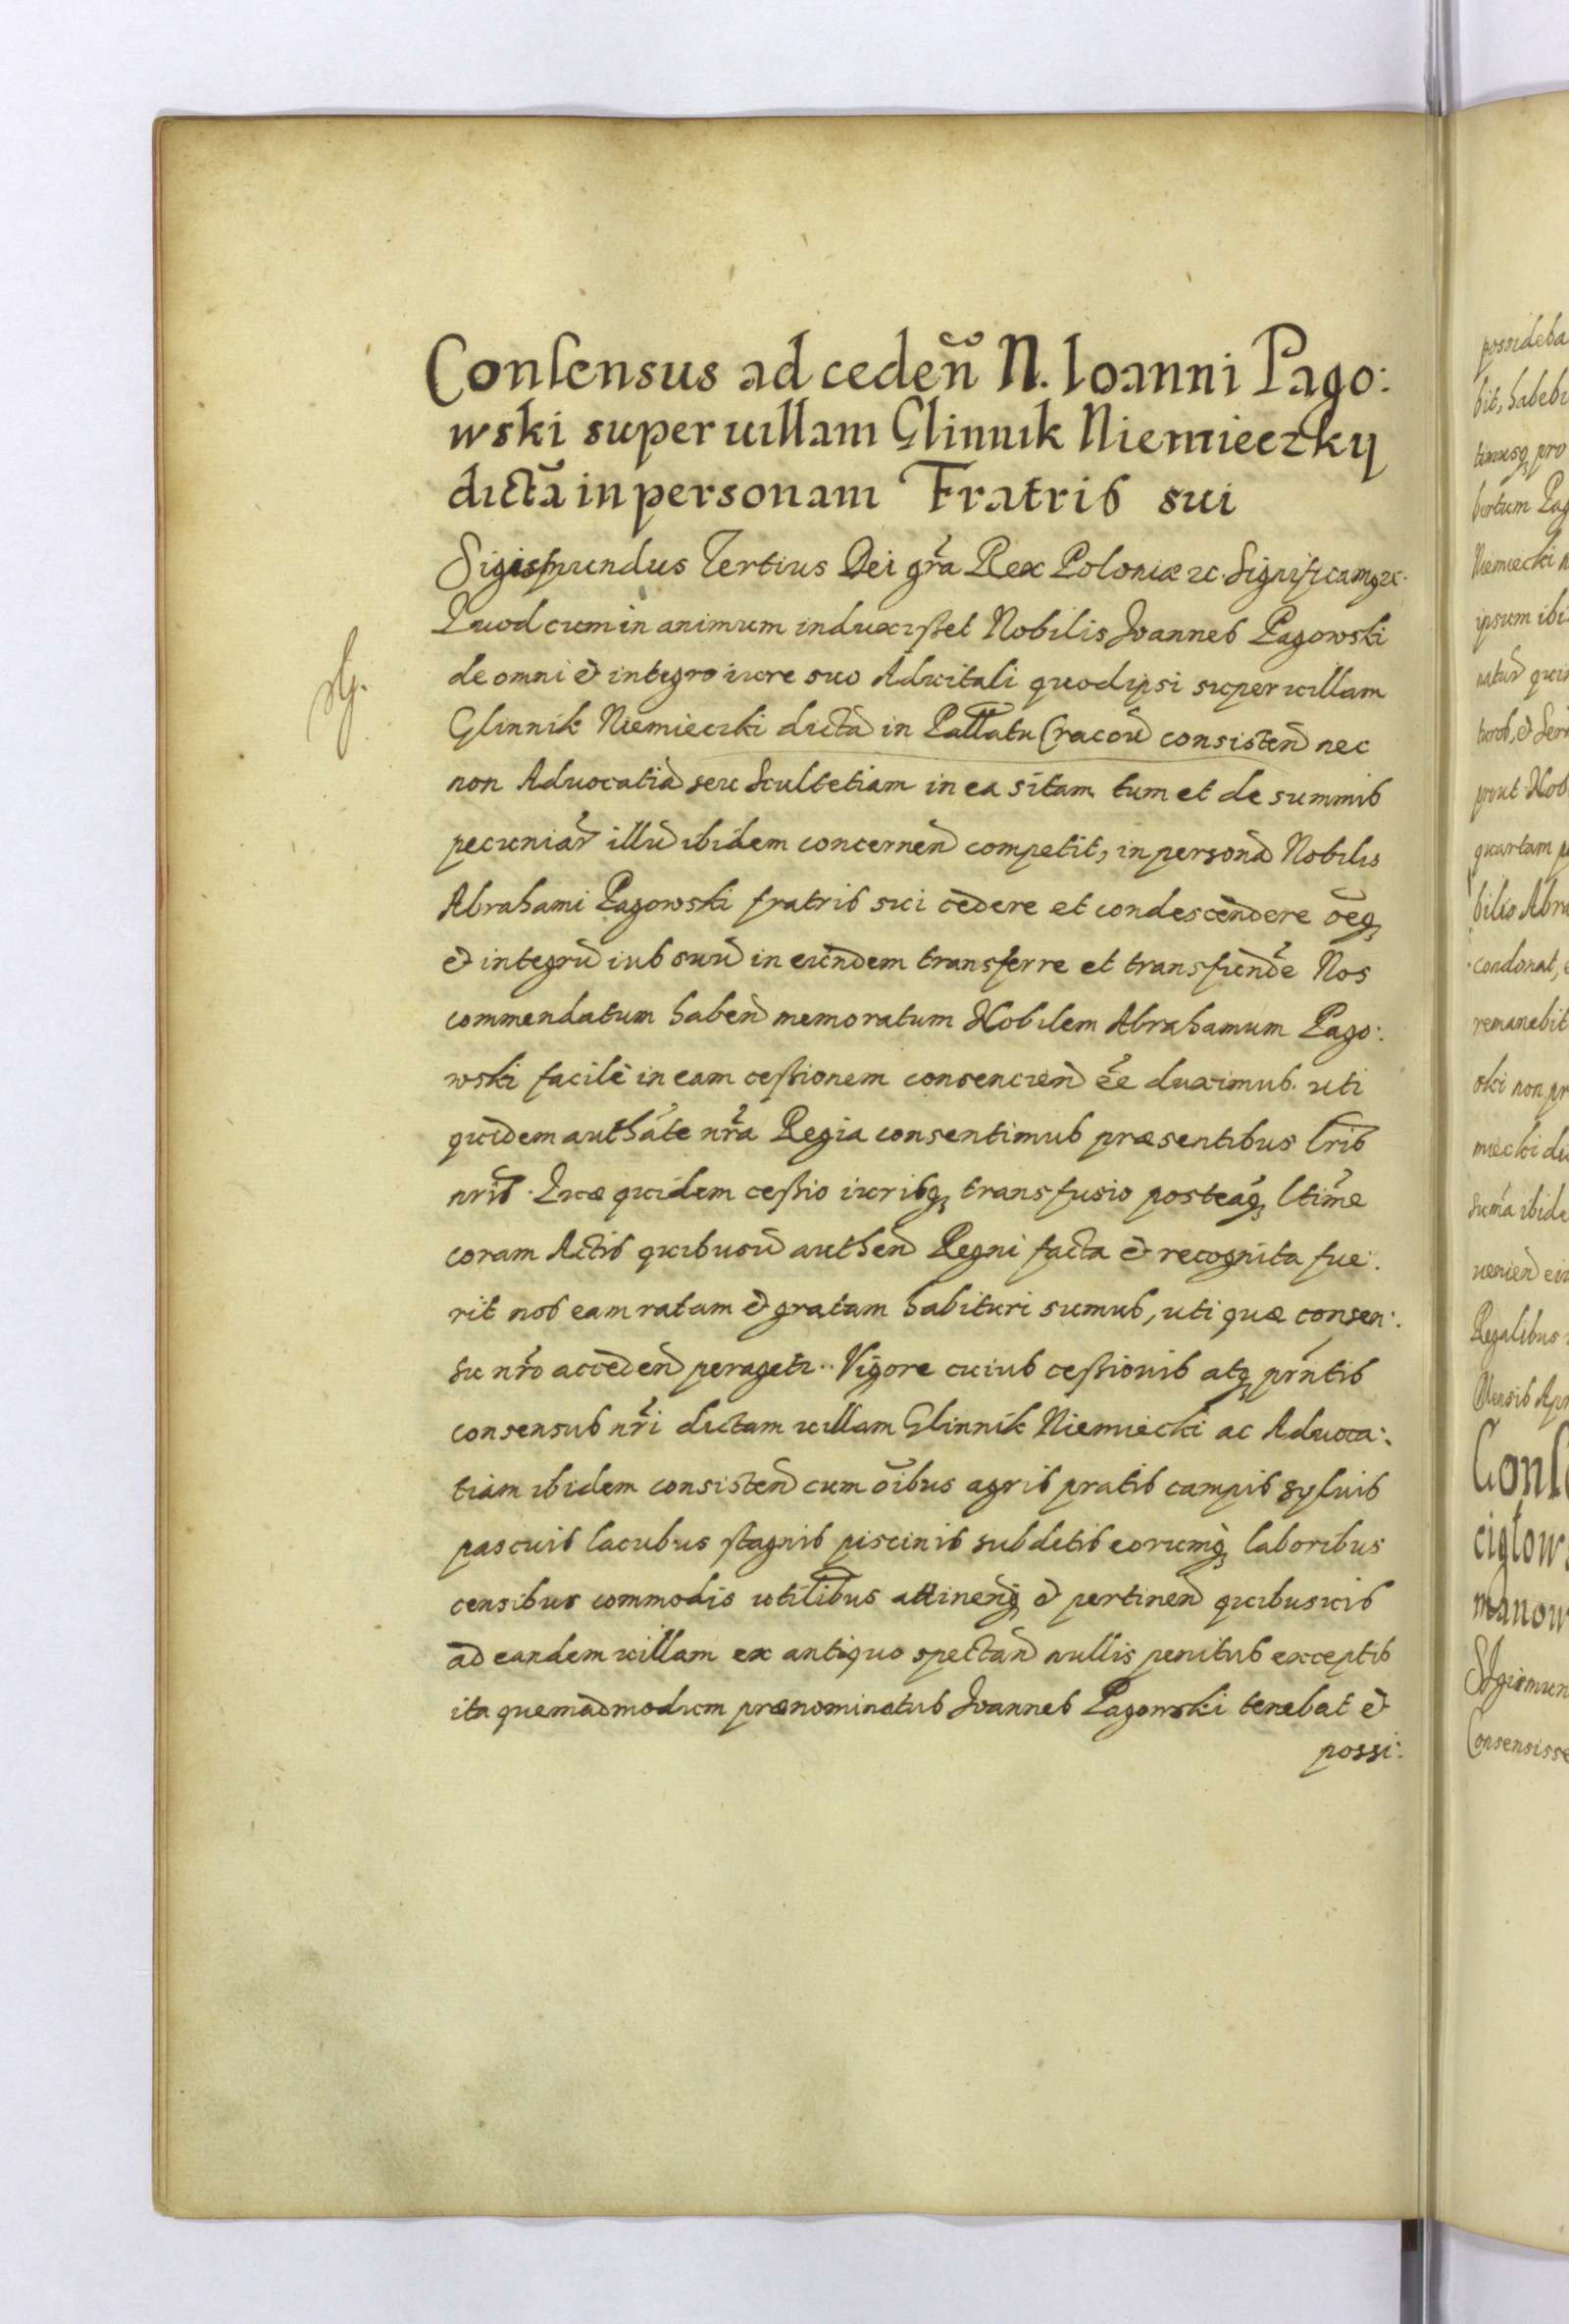 Consensus ad cedeñ N. Ioanni Pago:
wski super uillam Glinnik Niemieczky
dictã in personam Fratris sui
Sigismundus Tertius Dei gr̃a Rex Poloniæ &c. Significamq &c.
Quod cum in animum induxisset Nobilis Joannes Pagowski
de omni & integro iure suo Aduitali quod ipsi super uillam
Glinnik Niemieczki dictã in Pallatu Cracoũ consisteñ nec
non Aduocatiã seu Scultetiam in ea sitam tum et de summis
pecuniar̃ illũ ibidem concerneñ competit, in personã Nobilis
Abrahami Pagowski fratris sui cedere et condescendere õeq
& integrũ ius suũ in eundem transferre et transfundẽ Nos
commendatum habeñ memoratum Nobilem Abrahamum Pago:
wski facilè in eam cessionem consencieñ eẽ duximus. uti
quidem authãte nr̃a Regia consentimus præsentibus lr̃is
nr̃is. Quæ quidem cessio iurisq transfusio posteaq̃ ltimẽ
coram Actis quibusũ autheñ Regni facta & recognita fue:
rit nos eam ratam & gratam habituri sumus, uti quæ consen:
su nr̃o accedeñ peragetr. Vigore cuius cessionis atq pr̃ntis
consensus nr̃i dictam uillam Glinnik Niemiecki ac Aduoca:
tiam ibidem consisteñ cum õibus agris pratis campis syluis
pascuis lacubus stagnis piscinis subditis eorumq̃ laboribus
censibus commodis utilibus attineñq & pertineñ quibusuis
ad eandem uillam ex antiquo spectañ nullis penitus exceptis
ita quemadmodum prænominatus Joannes Pagowski tenebat &
possi:
possideba
bit, habebi
timusq pro
bertum Pag
Niemiecki n
ipsum ibi
natur̃ quis
prout Nob
quartam p
bilis Abra
condonat, e
remanebit
ski non pr
miecki di
sum̃a ibide
uenieñ ei
Regalibus
Mensis Apr
Cons
ciglows
manow
Sigismun
Consensisse